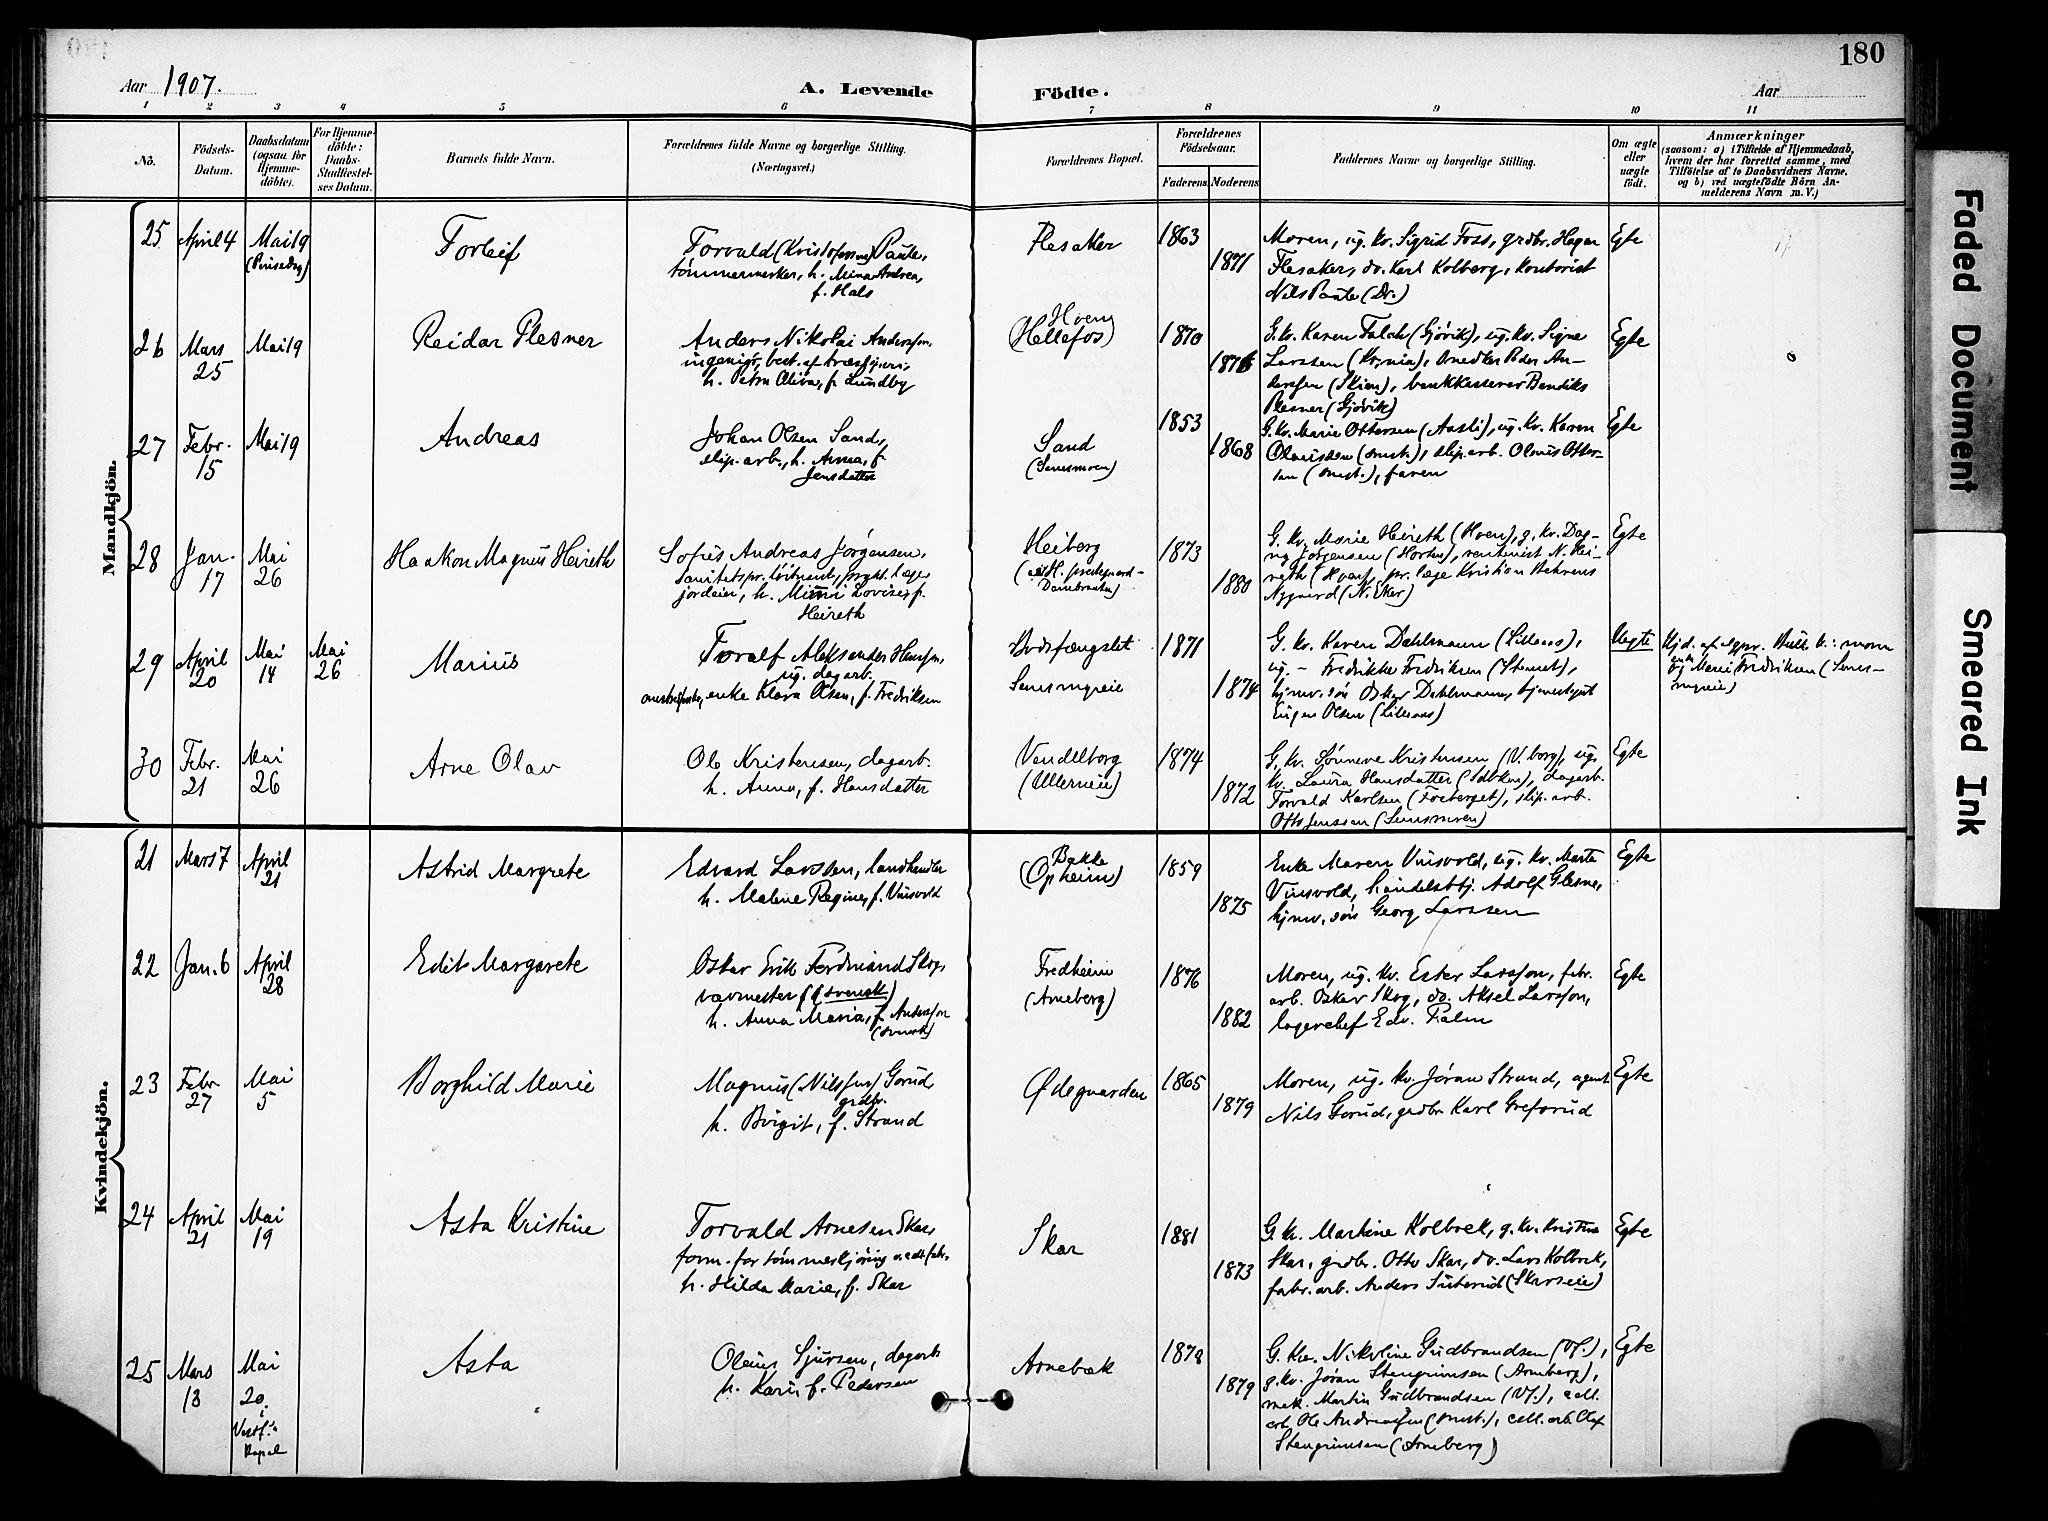 180
Aar 1907.
A. Levende Födte.
Aar
1 2 3 4 5 6 7 8 9 10 11
No.
Födsels-
Datum.
Daabsdatum
(ogsaa for
Hjemme-
döbte).
For Hjemme-
döbte:
Daabs-
Stadfæstel-
ses Datum.
Barnets fulde Navn.
Forældrenes fulde Navne og borgerlige Stilling.
(Næringsvei.)
Forældrenes Bopæl.
Forældrenes
Födselsaar.
Faderens. Moderens.
Faddernes Navne og borgerlige Stilling.
Om ægte
eller
uægte
födt.
Anmærkninger
(saasom: a) i Tilfælde af Hjemmedaab,
hvem der har forrettet samme, med
Tilföielse af to Daabsvidners Navne,
og b) ved uægtefödte Börn An-
melderens Navn m. V.)
Mandkjön.
25 April 4 Mai 19
(Pinsedag)
Torleif
Torvald (Kristofersen) Paule,
tømmermerker, h. Mina Andrea,
f. Hals
Flesaker
1863
1871
Moren, ug. kv. Sigrid Foss, grdbr. Hagen
Flesaker, do. Karl Kolberg, kontorist
Nils Paule (Dr.)
Egte
26 Mars
25
Mai 19
Reidar Plesner
Anders Nikolai Andersen,
ingeniør, best. af træsliperi,
h. Petra Oliva, f. Lundby
Hoen
(Hellefos)
1870
1876
G. kv. Karen Falch (Gjøvik), ug. kv. Signe
Larssen (Kr.nia), Peder An-
dersen (Skien), bankkasserer Bendiks
Plesner (Gjøvik)
Egte
27 Febr.
15
Mai 19
Andreas
Johan Olsen Sand,
slip. arb., h. Anna, f.
Jensdatter
Sand
1853
1868
G. kv. Marie Ottersen (Aasli), ug. kv. Karen
slip. arb. Olaus Otter-
sen faren
Egte
28 Jan.
17
Mai
26
Haakon Magnus Heireth
Sofus Andreas Jørgensen,
sanitetspr. løitnant, prakt. læge,
h. Mimi Lovise, f.
Heireth
Heiberg
1873
1880
G. kv. Marie Heireth (Hoen), g. kv. Dag-
ny Jørgensen (Horten), rentenist N. Hei-
reth (Hoen), pr. læge Kristian Behrens
Nygaard (N. Eker)
Egte
29 April
20
Mai
14
Mai
26
Marius
Toralf Aleksander Hansen,
ug. dagarb.
enke Klara Olsen, f. Fredriksen
Bodsfængslet
1871
1874
G. kv. Karen Dahlmann
ug. - Fredrikke Fredriksen
hjmv. søn Oskar Dahlmann,
Eugen Olsen
Uegte
Hjd. af
og Marie Fredriksen
30 Febr.
21
Mai
26
Arne Olav
Ole Kristensen, dagarb.
h. Anna, f. Hansdatter
Vendelborg
(Ullerneie)
1874
1872
G. kv. Sønneve Kristensen (V.borg), ug.
kv. Laura Hansdatter dagarb.
Torvald Karlsen slip. arb.
Otto Jenssen
Egte
Kvindekjön.
21 Mars 7 April
21
Astrid Margrete
Edvard Larssen, landhandler
h. Malene Regine, f. Vinsvold
Bakke
(Opheim)
1859
1875
Enke Maren Vinsvold, ug. kv. Marte
Vinsvold, handelsbtj. Adolf Glesne,
hjmv. søn Georg Larssen
Egte
22 Jan. 6 April
28
Edit Margarete
Oskar Erik Ferdinand Skog,
vævmester (svensk)
h. Anna Maria, f. Andersson
(svensk)
Fredheim
(Arneberg)
1876
1882
Moren, ug. kv. Ester Larsson, fabr.
arb. Oskar Skog, do. Aksel Larsson,
lagerchef Edv. Palm
Egte
23 Febr.
27
Mai
5
Borghild Marie
Magnus (Nilssen) Gorud
grdbr.
h. Birgit, f. Strand
Ødegaarden
1865
1879
Moren, ug. kv. Jøran Strand, agent
Nils Gorud, grdbr. Karl Grefsrud
Egte
24 April
21
Mai
19
Asta Kristine
Torvald Arnesen Skar,
form. for tømmerkjøring v. fabr.
h. Hilda Marie, f. Skar
Skar
1881
1873
G. kv. Martine Kolbræk, g. kv. Kristine
Skar, grdbr. Otto Skar, do. Lars Kolbræk,
fabr. arb. Anders Suterud (Skarseie)
Egte
25 Mars
13
Mai
20.
i
Vestf.s
Kapel
Asta
Oleus Sjursen, dagarb.
h. Kari f. Pedersen
Arnebæk
1878
1879
G. kv. Nikoline Gudbrandsen (Vf.),
g. kv. Jøran Stengrimsen (Arneberg),
mek. Martin Gudbrandsen (Vf.), cell.
arb. Ole Andreassen cell. arb. Olaf
Stengrimsen (Arneberg)
Egte
Faded Document
Smeared Ink